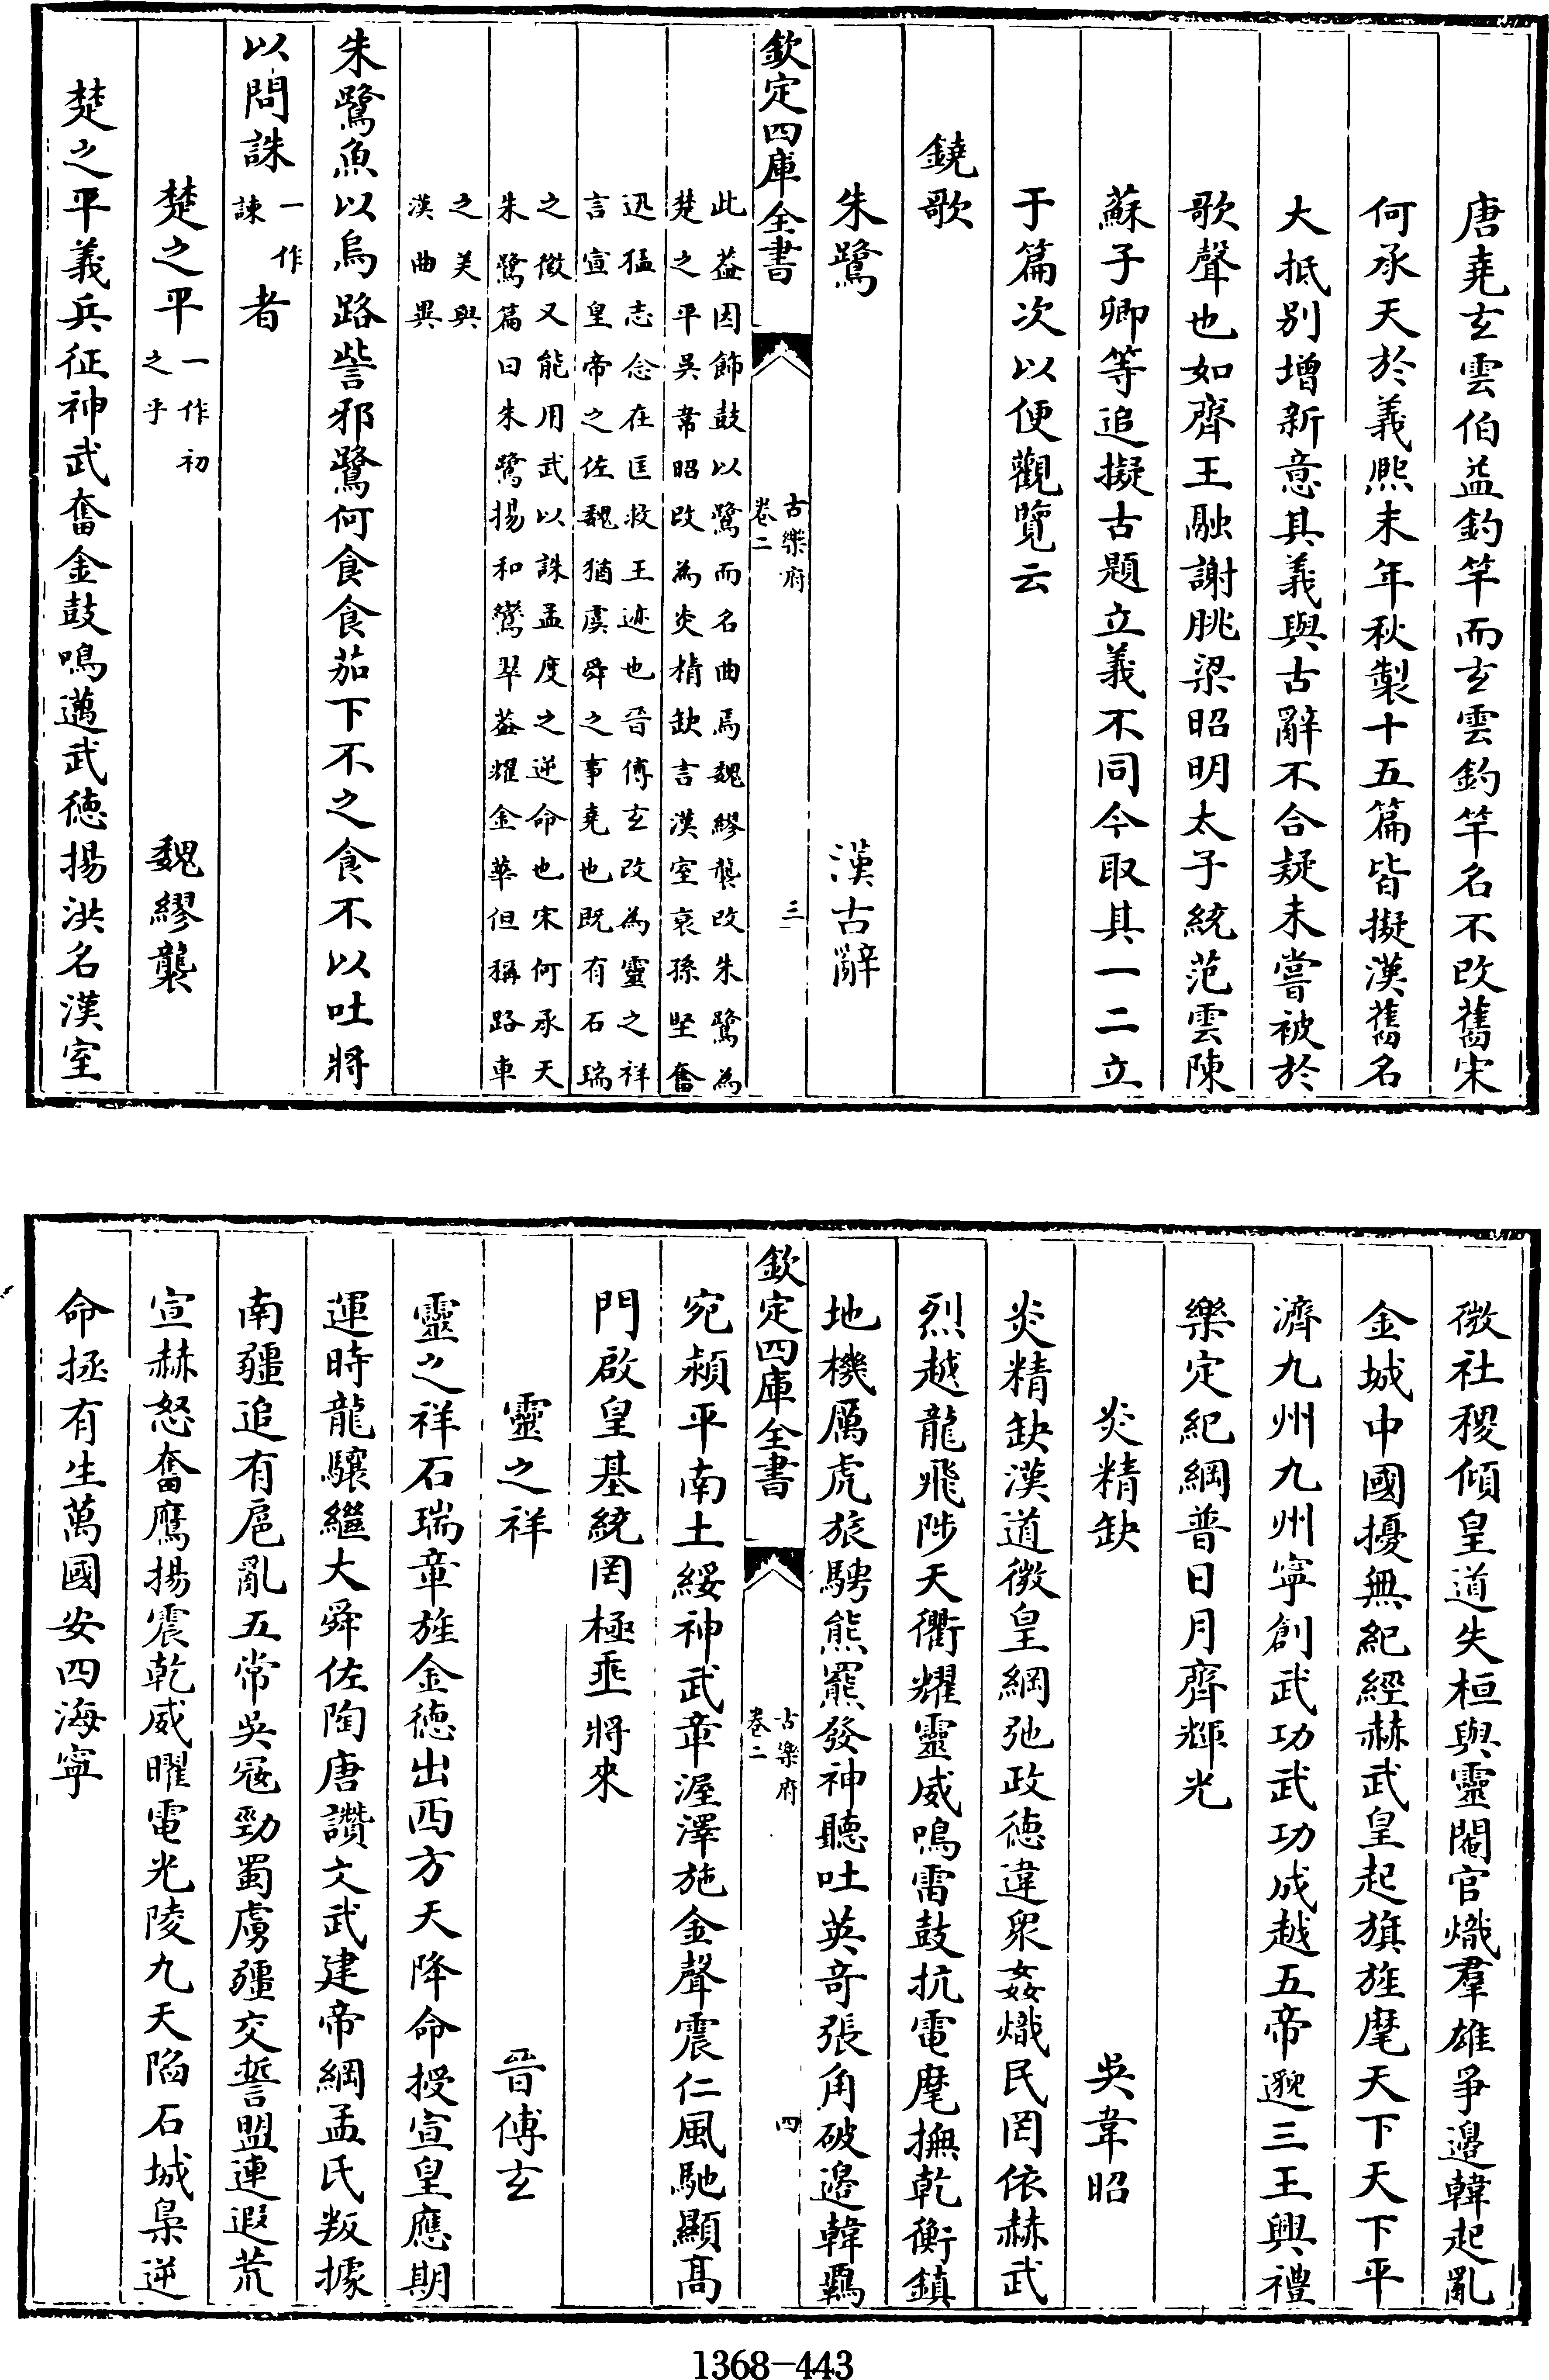 唐堯玄雲伯益釣竿而玄雲釣竿名不改舊宋
何承天於義熙末年秋製十五篇皆擬漢舊名
大抵別增新意其義與古辭不合疑未嘗被於
歌聲也如齊王融謝朓梁昭明太子統范雲陳
蘇子卿等追擬古題立義不同今取其一二立
于篇次以便觀覽云
鐃歌
朱鷺 漢古辭
欽定四庫全書 古樂府卷二 三
此葢因飾鼓以鷺而名曲焉魏繆襲改朱鷺為
楚之平吳韋昭改為炎精缺言漢室衰孫堅奮
迅猛志念在匡救王迹也晉傅玄改為靈之祥
言宣皇帝之佐魏猶虞舜之事堯也既有石瑞
之徵又能用武以誅孟度之逆命也宋何承天
朱鷺篇曰朱鷺揚和鸞翠葢耀金華但稱路車
之美與
漢曲異
朱鷺魚以烏路訾邪鷺何食食茄下不之食不以吐將
以問誅一作諫者
楚之平一作初之平 魏繆襲
楚之平義兵征神武奮金鼓鳴邁武徳揚洪名漢室
微社稷傾皇道失桓與靈閹官熾羣雄爭邉韓起亂
金城中國擾無紀經赫武皇起旗旌麾天下天下平
濟九州九州寧創武功武功成越五帝邈三王興禮
樂定紀綱普日月齊輝光
炎精缺 吳韋昭
炎精缺漢道微皇綱弛政徳違衆姦熾民罔依赫武
烈越龍飛陟天衢耀靈威鳴雷鼓抗電麾撫乾衡鎮
地機厲虎旅騁熊羆發神聽吐英奇張角破邉韓羈
欽定四庫全書 古樂府卷二 四
宛潁平南土綏神武章渥澤施金聲震仁風馳顯髙
門啟皇基統罔極垂將來
靈之祥 晉傅玄
靈之祥石瑞章旌金徳出西方天降命授宣皇應期
運時龍驤繼大舜佐陶唐讚文武建帝綱孟氏叛據
南疆追有扈亂五常吳寇勁蜀虜彊交誓盟連遐荒
宣赫怒奮鷹揚震乾威曜電光陵九天陷石城梟逆
命拯有生萬國安四海寧
1368-443